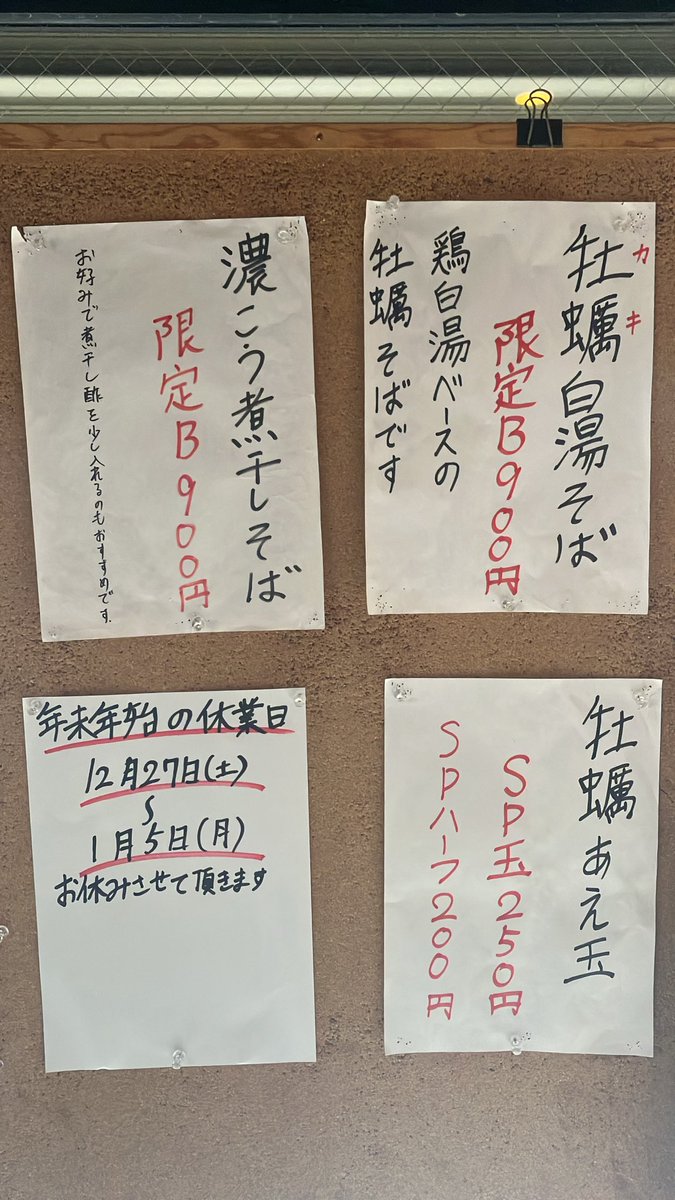 牡蠣白湯そば
カキ
限定B900円
鶏白湯ベースの
牡蠣そばです
濃こう煮干しそば
限定B900円
お好みで煮干し酢を少し入れるのもおすすめです。
牡蠣あえ玉
SP玉250円
SPハーフ200円
年末年始の休業日
12月27日(土)
〜
1月5日(月)
お休みさせて頂きます